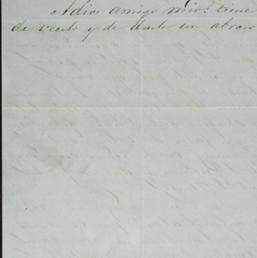 Adios amigo mio: tiene
de verlo y de darle un abrazo